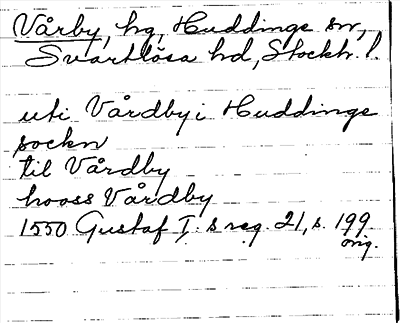 Vårby, hg, Huddinge sn,
Svartlösa hd, Stockh. l.
uti Vårdby i Huddinge
sockn
til Vårdby
hooss Vårdby
1550 Gustaf I:s reg. 21, s. 199.
orig.